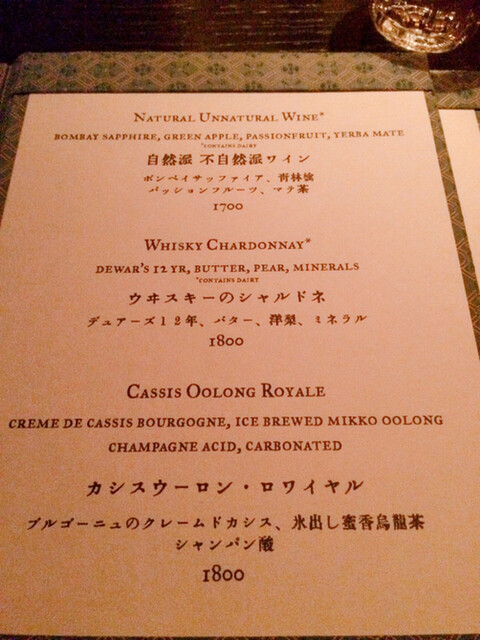 Natural Unnatural Wine*
Bombay Sapphire, Green Apple, Passionfruit, Yerba Mate
*Contains Dairy
自然派 不自然派ワイン
ボンベイサッファイア、青林檎
パッションフルーツ、マテ茶
1700
Whisky Chardonnay*
Dewar's 12 yr, Butter, Pear, Minerals
*Contains Dairy
ウヰスキーのシャルドネ
デュアーズ12年、バター、洋梨、ミネラル
1800
Cassis Oolong Royale
Creme de Cassis Bourgogne, Ice Brewed Mikko Oolong
Champagne Acid, Carbonated
カシスウーロン・ロワイヤル
ブルゴーニュのクレームドカシス、氷出し蜜香烏龍茶
シャンパン酸
1800